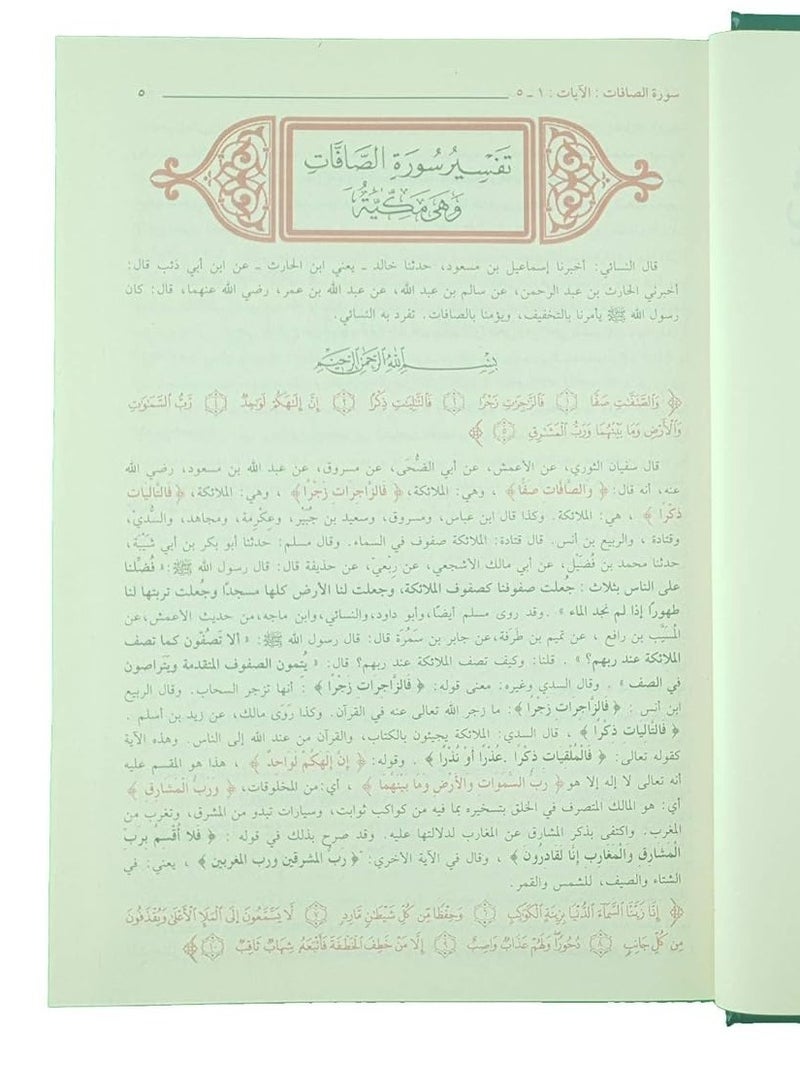 سورة الصافات : الآيات : ١ ـ ٥ ٥
تفسير سورة الصَّافَّات
وهى مكيّة
قال النسائي: أخبرنا إسماعيل بن مسعود، حدثنا خالد ـ يعني ابن الحارث ـ عن ابن أبي ذئب قال:
أخبرني الحارث بن عبد الرحمن، عن سالم بن عبد الله، عن عبد الله بن عمر، رضي الله عنهما، قال: كان
رسول الله ﷺ يأمرنا بالتخفيف، ويؤمنا بالصافات. تفرد به النسائي.
بِسْمِ اللهِ الرَّحْمَنِ الرَّحِيمِ
﴿ وَالصَّٰٓفَّٰتِ صَفًّا ١ فَالزَّٰجِرَٰتِ زَجْرًا ٢ فَالتَّٰلِيَٰتِ ذِكْرًا ٣ إِنَّ إِلَٰهَكُمْ لَوَٰحِدٌ ٤ رَّبُّ السَّمَٰوَٰتِ
وَالْأَرْضِ وَمَا بَيْنَهُمَا وَرَبُّ الْمَشَٰرِقِ ٥ ﴾
قال سفيان الثوري، عن الأعمش، عن أبي الضُّحَى، عن مسروق، عن عبد الله بن مسعود، رضي الله
عنه، أنه قال: ﴿ وَالصَّافَّات صَفًّا ﴾ ، وهي: الملائكة، ﴿ فَالزَّاجِرَات زَجْرًا ﴾ ، وهي: الملائكة، ﴿ فَالتَّالِيَات
ذِكْرًا ﴾ ، هي: الملائكة. وكذا قال ابن عباس، ومسروق، وسعيد بن جُبَيْر، وعِكْرِمة، ومجاهد، والسُّدّيّ،
وقتادة ، والربيع بن أنس. قال قتادة: الملائكة صفوف في السماء. وقال مسلم: حدثنا أبو بكر بن أبي شَيْبَة،
حدثنا محمد بن فُضَيْل، عن أبي مالك الأشجعي، عن رِبْعيّ، عن حذيفة قال: قال رسول الله ﷺ: « فُضِّلنا
على الناس بثلاث : جُعلت صفوفنا كصفوف الملائكة، وجعلت لنا الأرض كلها مسجدًا وجُعلت تربتها لنا
طهورًا إذا لم نجد الماء » .وقد روى مسلم أيضًا،وأبو داود،والنسائي،وابن ماجه،من حديث الأعمش،عن
المُسَيَّب بن رافع ، عن تميم بن طَرَفة،عن جابر بن سَمُرَة قال: قال رسول الله ﷺ: « ألا تَصُفُّون كما تصف
الملائكة عند ربهم؟ » . قلنا: وكيف تصف الملائكة عند ربهم؟ قال: « يُتِمون الصفوف المتقدمة ويَتَراصون
في الصف » . وقال السدي وغيره: معنى قوله: ﴿ فَالزَّاجِرَات زَجْرًا ﴾ : أنها تزجر السحاب. وقال الربيع
ابن أنس : ﴿ فَالزَّاجِرَات زجرا ﴾: ما زجر الله تعالى عنه في القرآن. وكذا رَوَى مالك، عن زيد بن أسلم .
﴿ فَالتَّالِيَات ذكْرًا ﴾ ، قال السدي: الملائكة يجيئون بالكتاب، والقرآن من عند الله إلى الناس. وهذه الآية
كقوله تعالى: ﴿ فَالْمُلْقِيَات ذكْرًا .عُذْرًا أَوْ نُذْرًا ﴾ . وقوله: ﴿ إِنَّ إِلَهَكُمْ لَوَاحدٌ ﴾ ، هذا هو المقسم عليه
أنه تعالى لا إله إلا هو ﴿ رَبُّ السَّمَوَات وَالأَرْضِ وَمَا بَيْنَهُمَا ﴾ ، أي:من المخلوقات، ﴿ وَرَبُّ الْمَشَارِقِ ﴾
أي: هو المالك المتصرف في الخلق بتسخيره بما فيه من كواكب ثوابت، وسيارات تبدو من المشرق، وتغرب من
المغرب. واكتفى بذكر المشارق عن المغارب لدلالتها عليه. وقد صرح بذلك في قوله : ﴿ فَلا أُقْسِمُ بِرَبّ
الْمَشَارِق وَالْمَغَارِب إِنَّا لَقَادرُونَ ﴾ ، وقال في الآية الأخرى: ﴿ رَبُّ الْمَشْرِقَيْنِ وربُّ الْمَغْرِبَيْنِ ﴾ ، يعني: في
الشتاء والصيف، للشمس والقمر.
﴿ إِنَّا زَيَّنَّا السَّمَآءَ الدُّنْيَا بِزِينَةٍ الْكَوَاكِبِ ٦ وَحِفْظًا مِّن كُلِّ شَيْطَٰنٍ مَّارِدٍ ٧ لَّا يَسَّمَّعُونَ إِلَى الْمَلَإِ الْأَعْلَىٰ وَيُقْذَفُونَ
مِن كُلِّ جَانِبٍ ٨ دُحُورًا وَلَهُمْ عَذَابٌ وَاصِبٌ ٩ إِلَّا مَنْ خَطِفَ الْخَطْفَةَ فَأَتْبَعَهُ شِهَابٌ ثَاقِبٌ ١٠ ﴾